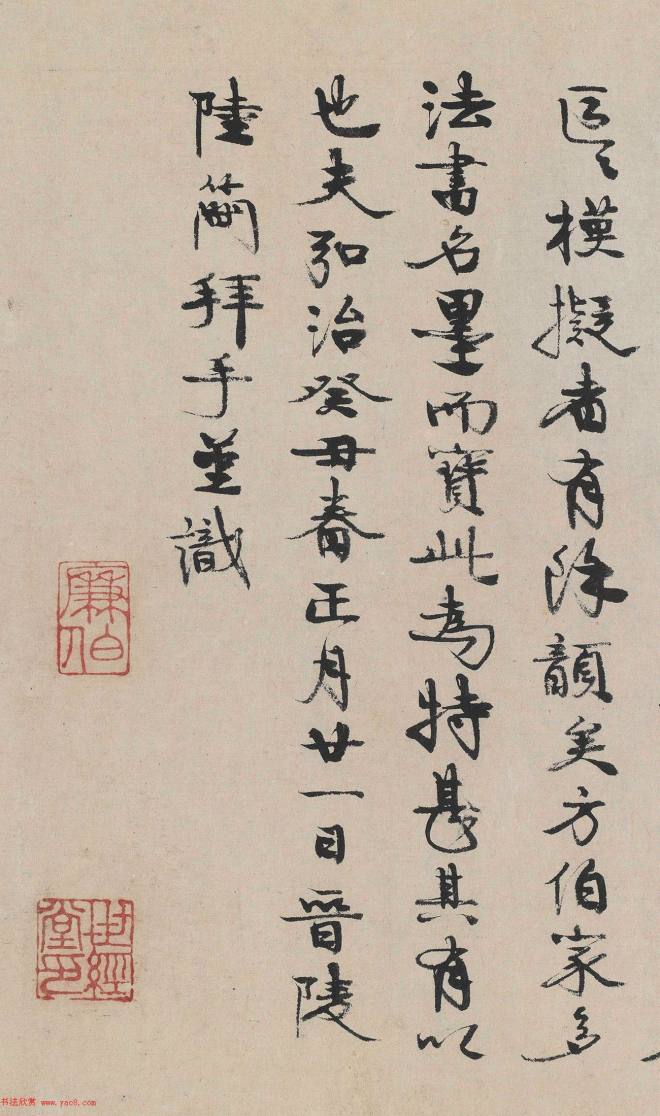 區々模擬者有除顏矣方伯家多
法書名墨而寶此為特甚其有以
也夫弘治癸丑春正月廿一日晉陵
陸簡拜手並識
廉伯
世經堂印
书法欣赏 www.yac8.com